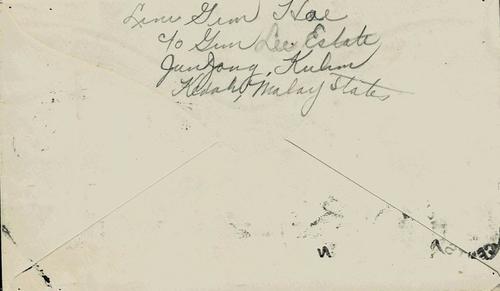 Lim Gim Hoe
c/o Gim Lee Estate,
Junjong, Kulim
Kedah, Malay States